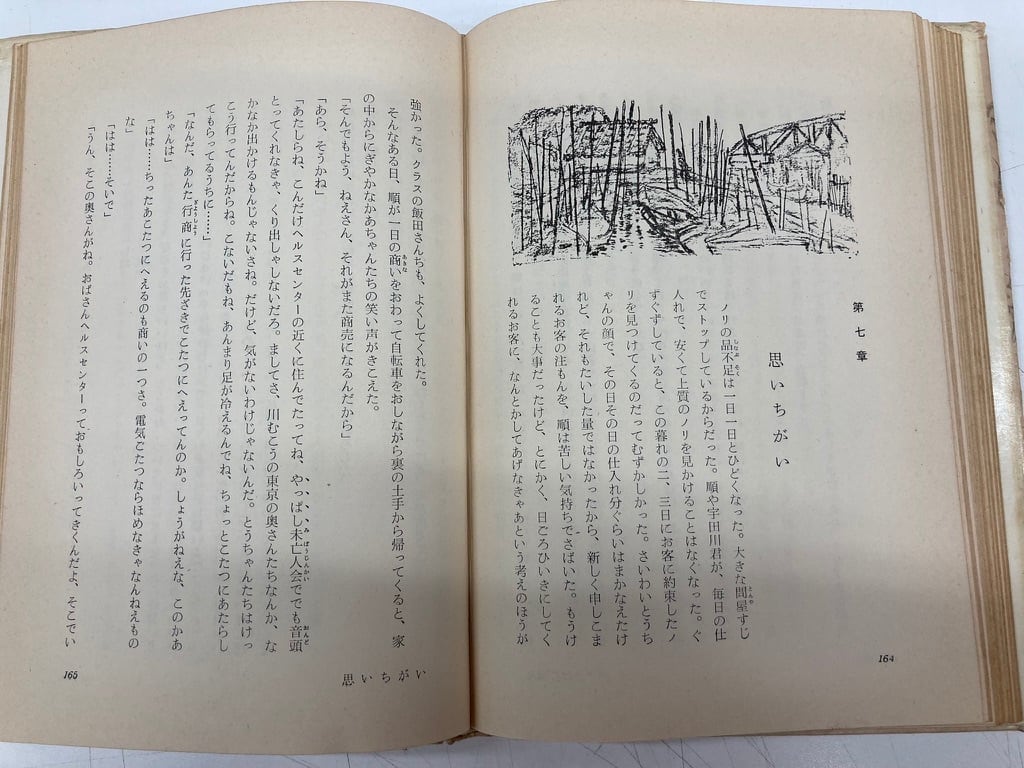 第七章
思いちがい
ノリの品不足は一日一日とひどくなった。大きな問屋すじ
でストップしているからだった。順や宇田川君が、毎日の仕
入れで、安くて上質のノリを見かけることはなくなった。ぐ
ずぐずしていると、この暮れの二、三日にお客に約束したノ
リを見つけてくるのだってむずかしかった。さいわいとうち
ゃんの顔で、その日その日の仕入れ分ぐらいはまかなえたけ
れど、それもたいした量ではなかったから、新しく申しこま
れるお客の注もんを、順は苦しい気持ちでさばいた。もうけ
ることも大事だったけど、とにかく、日ごろひいきにしてく
れるお客に、なんとかしてあげなきゃあという考えのほうが
164
強かった。クラスの飯田さんちも、よくしてくれた。
そんなある日、順が一日の商いをおわって自転車をおしながら裏の土手から帰ってくると、家
の中からにぎやかなかあちゃんたちの笑い声がきこえた。
「そんでもよう、ねえさん、それがまた商売になるんだから」
「あら、そうかね」
「あたしらね、こんだけヘルスセンターの近くに住んでたってね、やっぱし未亡人会ででも音頭
とってくれなきゃ、くり出しゃしないだろ。ましてさ、川むこうの東京の奥さんたちなんか、な
かなか出かけるもんじゃないさね。だけど、気がないわけじゃないんだ。とうちゃんたちはけっ
こう行ってんだからね。こないだもね、あんまり足が冷えるんでね、ちょっとこたつにあたらし
てもらってるうちに……」
「なんだ、あんた行商に行った先ざきでこたつにへえってんのか。しょうがねえな、このかあ
ちゃんは」
「はは……ちったあこたつにへえるのも商いの一つさ。電気ごたつならほめなきゃなんねえもの
な」
「はは……そいで」
「うん、そこの奥さんがね。おばさんヘルスセンターっておもしろいってきくんだよ、そこでい
思いちがい
165